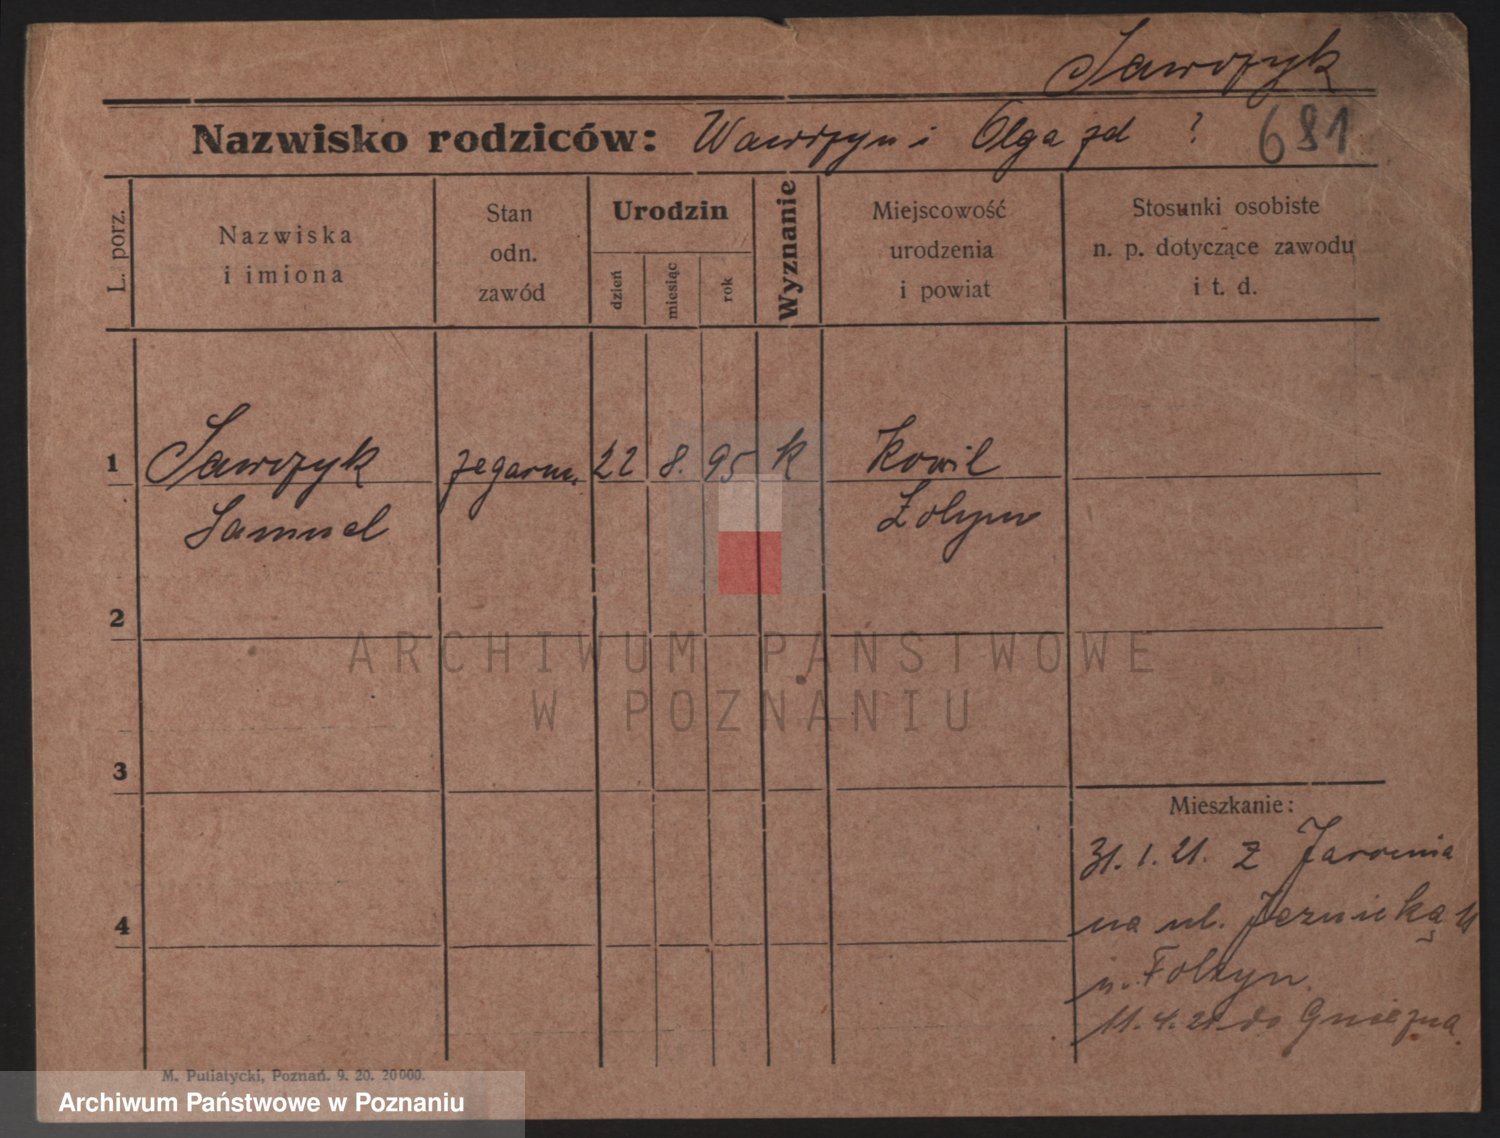 Sawczyk
Nazwisko rodziców: Wawrzyn i Olga zd ? 681
L. porz.
Nazwiska
i imiona
Stan
odn.
zawód
Urodzin
dzień
miesiąc
rok
Wyznanie
Miejscowość
urodzenia
i powiat
Stosunki osobiste
n. p. dotyczące zawodu
i t. d.
1 Sawczyk zegarm. 22 8. 95 k Kowil
Samuel
2
3
4
Mieszkanie:
31. 1. 21. z
na ul.
u.
11. 4. 21 do Gniezna.
M. Putiatycki, Poznań. 9. 20. 20000.
ARCHIWUM PAŃSTWOWE
W POZNANIU
Archiwum Państwowe w Poznaniu